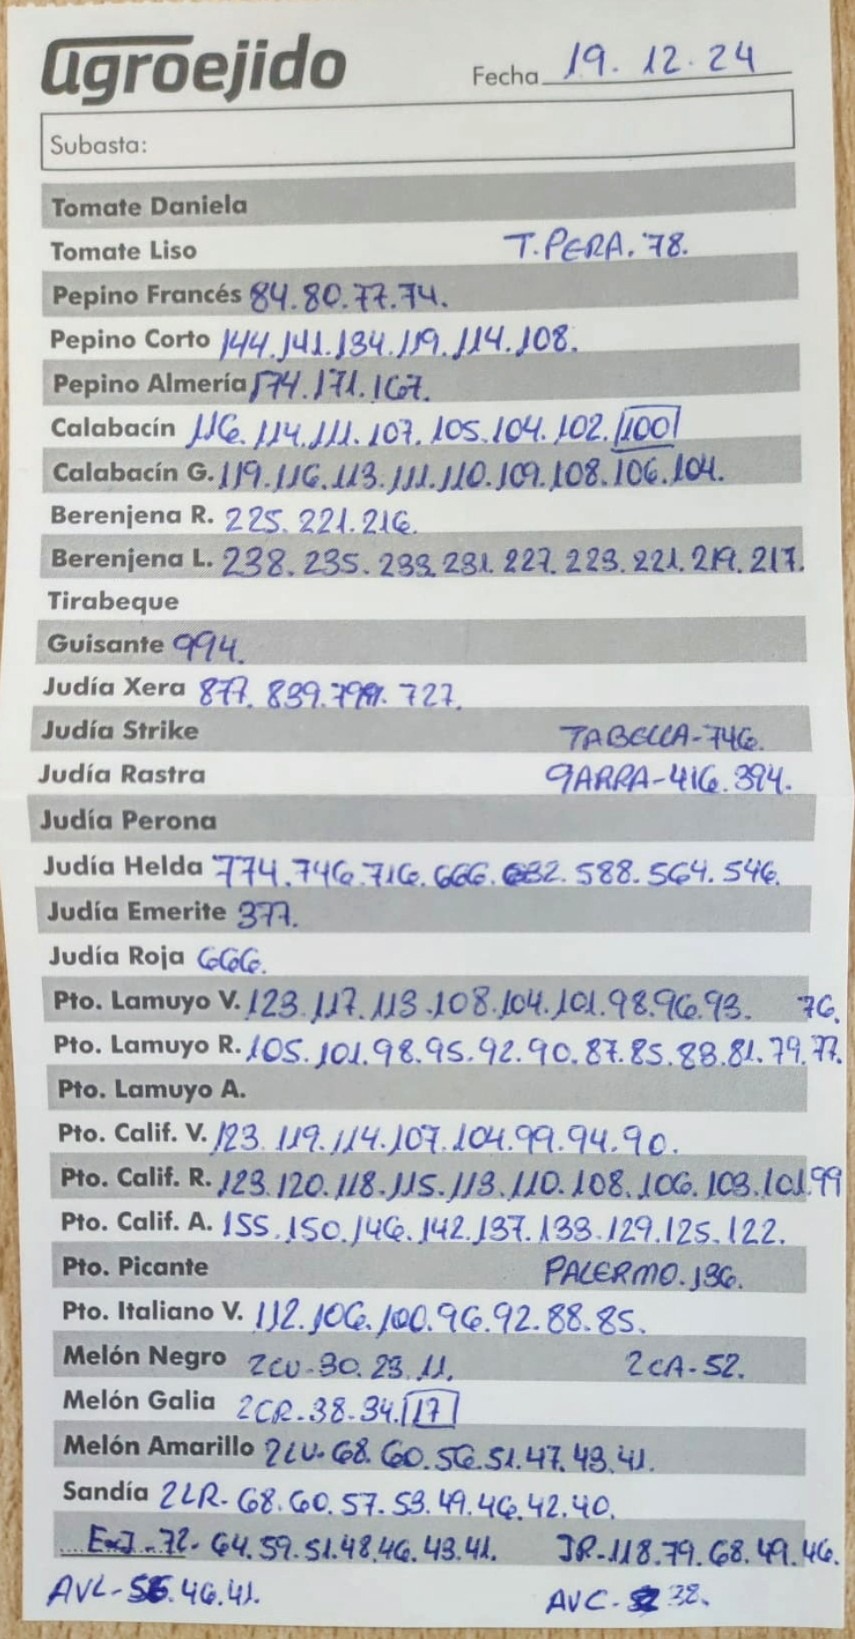 agroejido Fecha 19.12.24
Subasta:
Tomate Daniela
Tomate Liso T.PERA.78.
Pepino Francés 84.80.77.74.
Pepino Corto 144.141.134.119.114.108.
Pepino Almería 174.171.167.
Calabacín 116.114.111.107.105.104.102.100
Calabacín G. 119.116.113.111.110.109.108.106.104.
Berenjena R. 225.221.216.
Berenjena L. 238.235.233.231.227.223.221.219.217.
Tirabeque
Guisante 994.
Judía Xera 877.839.799.727.
Judía Strike TABELLA-746.
Judía Rastra GARRA-416.394.
Judía Perona
Judía Helda 774.746.716.666.632.588.564.546.
Judía Emerite 377.
Judía Roja 666.
Pto. Lamuyo V. 123.117.113.108.104.101.98.96.93. 76.
Pto. Lamuyo R. 105.101.98.95.92.90.87.85.83.81.79.77.
Pto. Lamuyo A.
Pto. Calif. V. 123.119.114.107.104.99.94.90.
Pto. Calif. R. 123.120.118.115.113.110.108.106.103.101.99
Pto. Calif. A. 155.150.146.142.137.133.129.125.122.
Pto. Picante PALERMO.136.
Pto. Italiano V. 112.106.100.96.92.88.85.
Melón Negro 2CU-30.23.11. 2CA-52.
Melón Galia 2CR-38-34.17
Melón Amarillo 2LU-68.60.56.51.47.43.41.
Sandía 2LR-68.60.57.53.49.46.42.40.
72-64.59.51.48.46.43.41. JR-118.79.68.49.46.
AVL-56.46.41. AVC- 38.